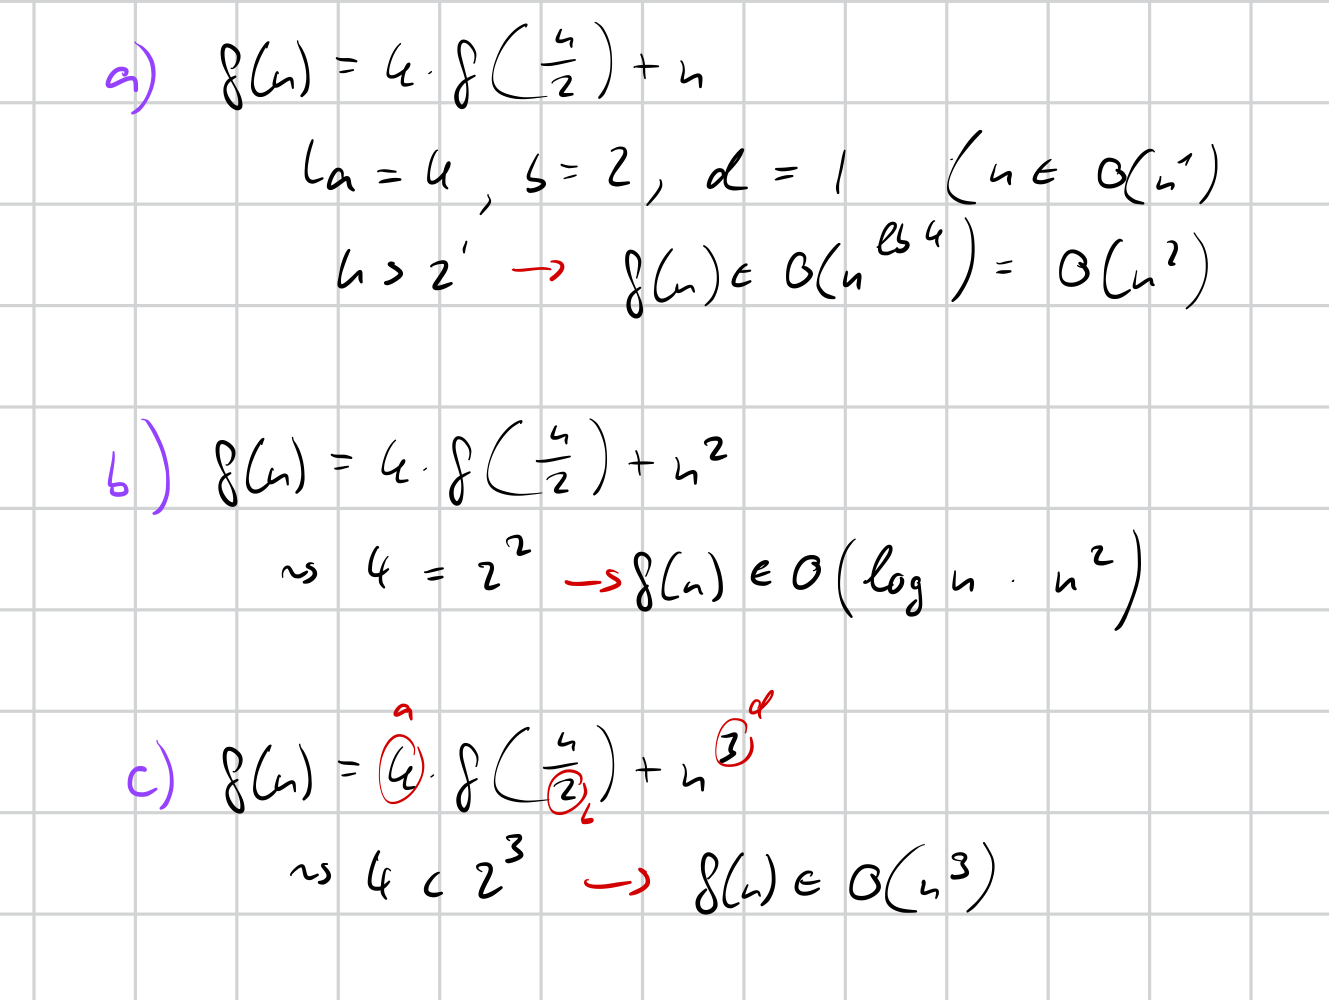 a) f(n) = 4 · f(n/2) + n
↳ a = 4, b = 2, d = 1 (n ∈ O(n¹)
4 > 2¹ → f(n) ∈ O(n^(lb 4)) = O(n²)
b) f(n) = 4 · f(n/2) + n²
⇝ 4 = 2² → f(n) ∈ O(log n · n²)
a d
c) f(n) = 4 · f(n/2) + n³
b
⇝ 4 < 2³ → f(n) ∈ O(n³)